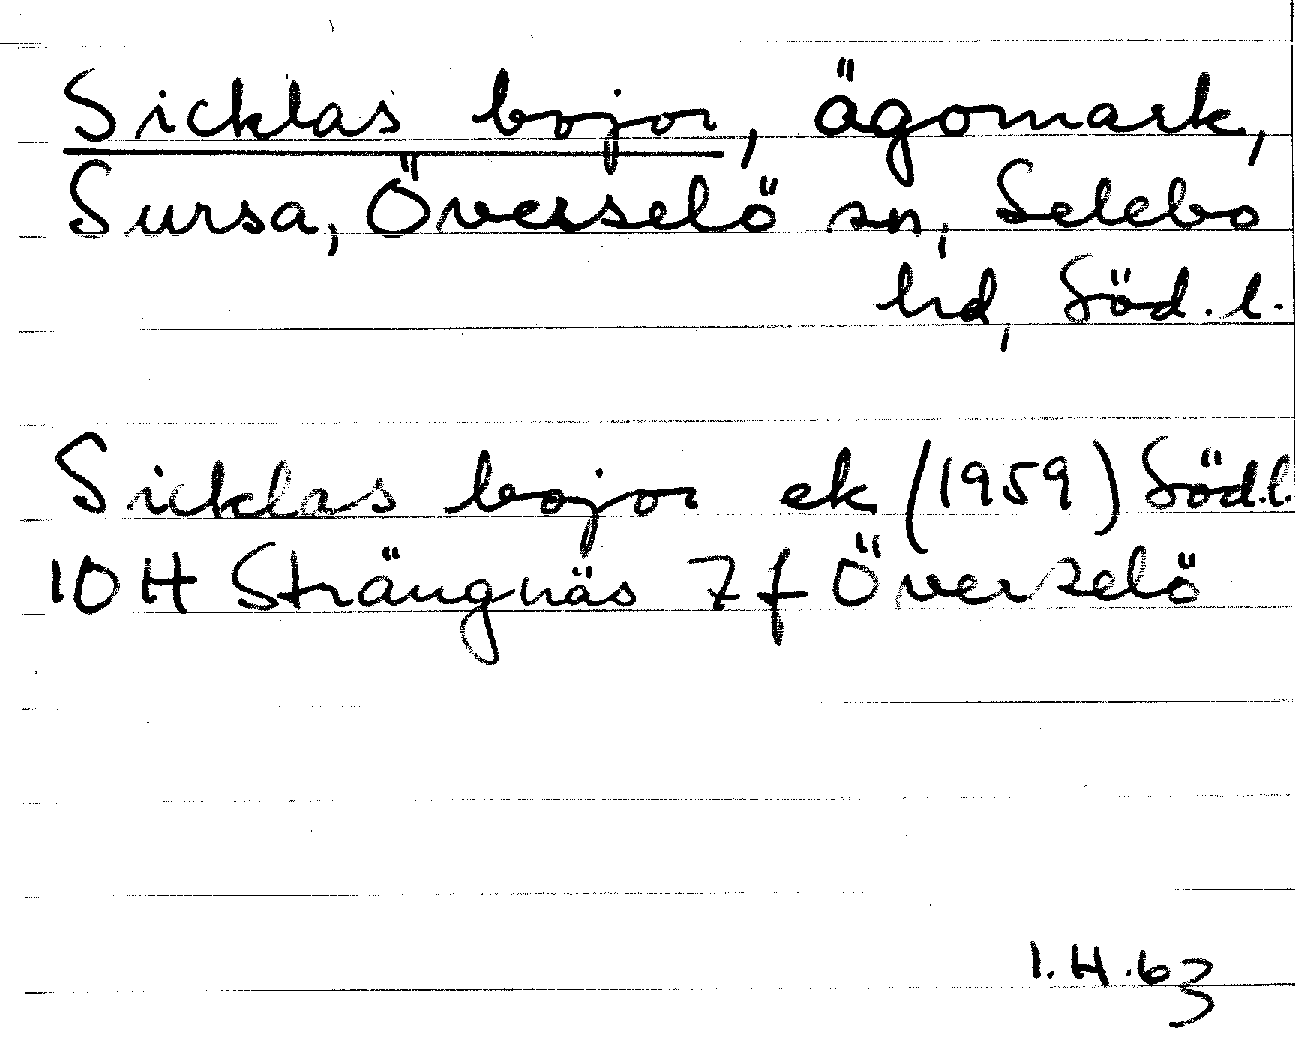 Sicklas bojor, ägomark,
Sursa, Överselö sn, Selebo
hd, Söd. l.
Sicklas bojor ek (1959) Söd. l.
10 H Strängnäs 7 f Överselö
I. H. 63